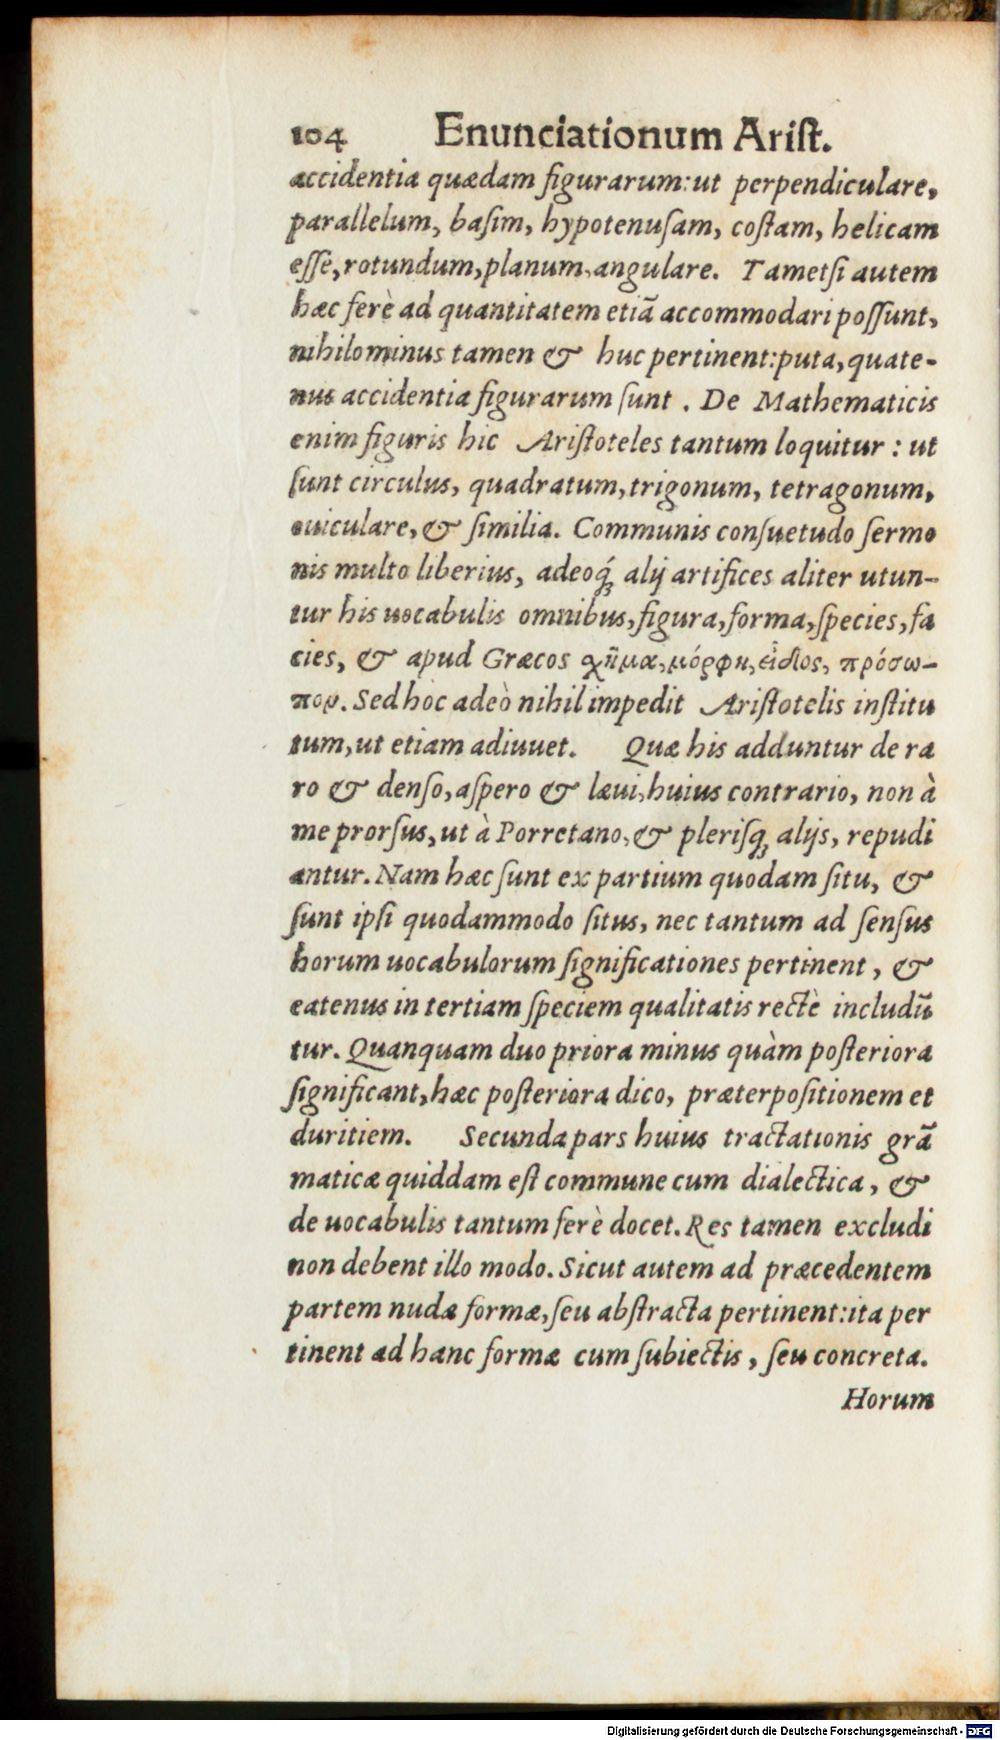 104 Enunciationum Ariſt.
accidentia quædam figurarum: ut perpendiculare,
parallelum, baſim, hypotenuſam, coſtam, helicam
eſſe, rotundum, planum, angulare. Tametſi autem
hæc ferè ad quantitatem etiã accommodari poſſunt,
nihilominus tamen & huc pertinent: puta, quate-
nus accidentia figurarum ſunt. De Mathematicis
enim figuris hic Ariſtoteles tantum loquitur: ut
ſunt circulus, quadratum, trigonum, tetragonum,
ouiculare, & ſimilia. Communis conſuetudo ſermo
nis multo liberius, adeoq́; alij artifices aliter utun-
tur his uocabulis omnibus, figura, forma, ſpecies, fa
cies, & apud Græcos χῆμα, μόρφη, εἶδος, πρόσω-
πον. Sed hoc adeò nihil impedit Ariſtotelis inſtitu
tum, ut etiam adiuuet. Quæ his adduntur de ra
ro & denſo, aſpero & læui, huius contrario, non à
me prorſus, ut à Porretano, & pleriſq; alijs, repudi
antur. Nam hæc ſunt ex partium quodam ſitu, &
ſunt ipſi quodammodo ſitus, nec tantum ad ſenſus
horum uocabulorum ſignificationes pertinent, &
eatenus in tertiam ſpeciem qualitatis rectè includũ
tur. Quanquam duo priora minus quàm poſteriora
ſignificant, hæc poſteriora dico, præterpoſitionem et
duritiem. Secunda pars huius tractationis grã
maticæ quiddam eſt commune cum dialectica, &
de uocabulis tantum ferè docet. Res tamen excludi
non debent illo modo. Sicut autem ad præcedentem
partem nudæ formæ, ſeu abſtracta pertinent: ita per
tinent ad hanc formæ cum ſubiectis, ſeu concreta.
Horum
Digitalisierung gefördert durch die Deutsche Forschungsgemeinschaft - DFG